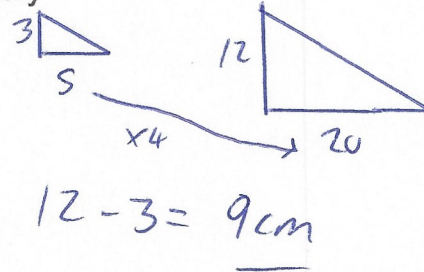 3
5
12
20
×4
12 - 3 = 9cm